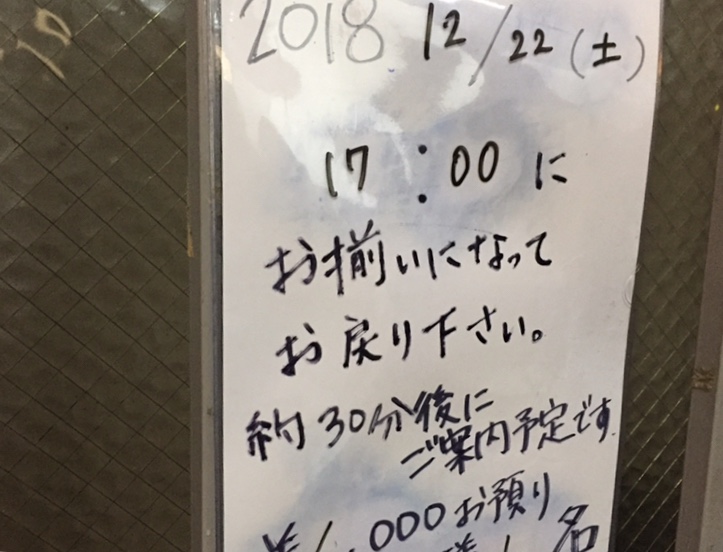 2018 12/22(土)
17:00に
お揃いになって
お戻り下さい。
約30分後に
ご案内予定です
000お預り
名